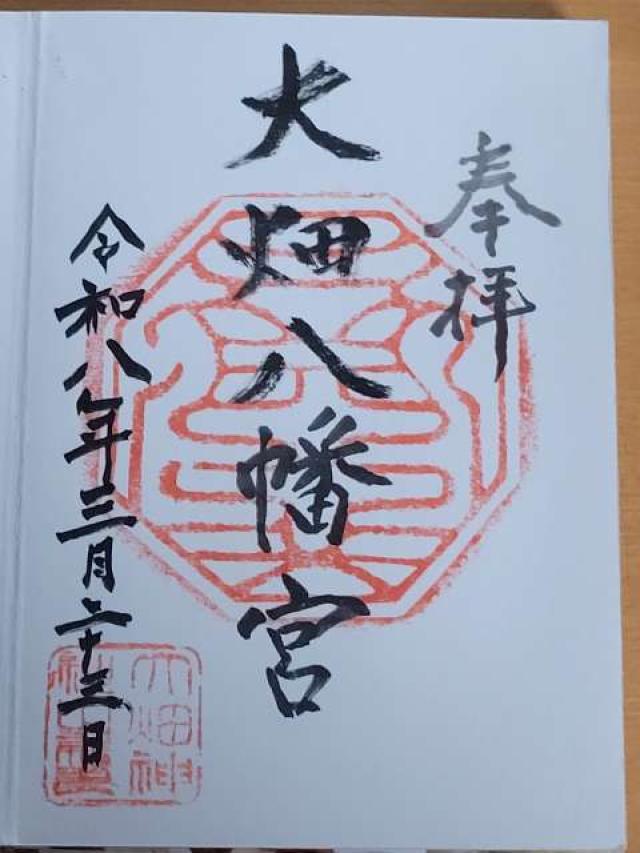 奉拝
大畑八幡宮
令和八年三月二十三日